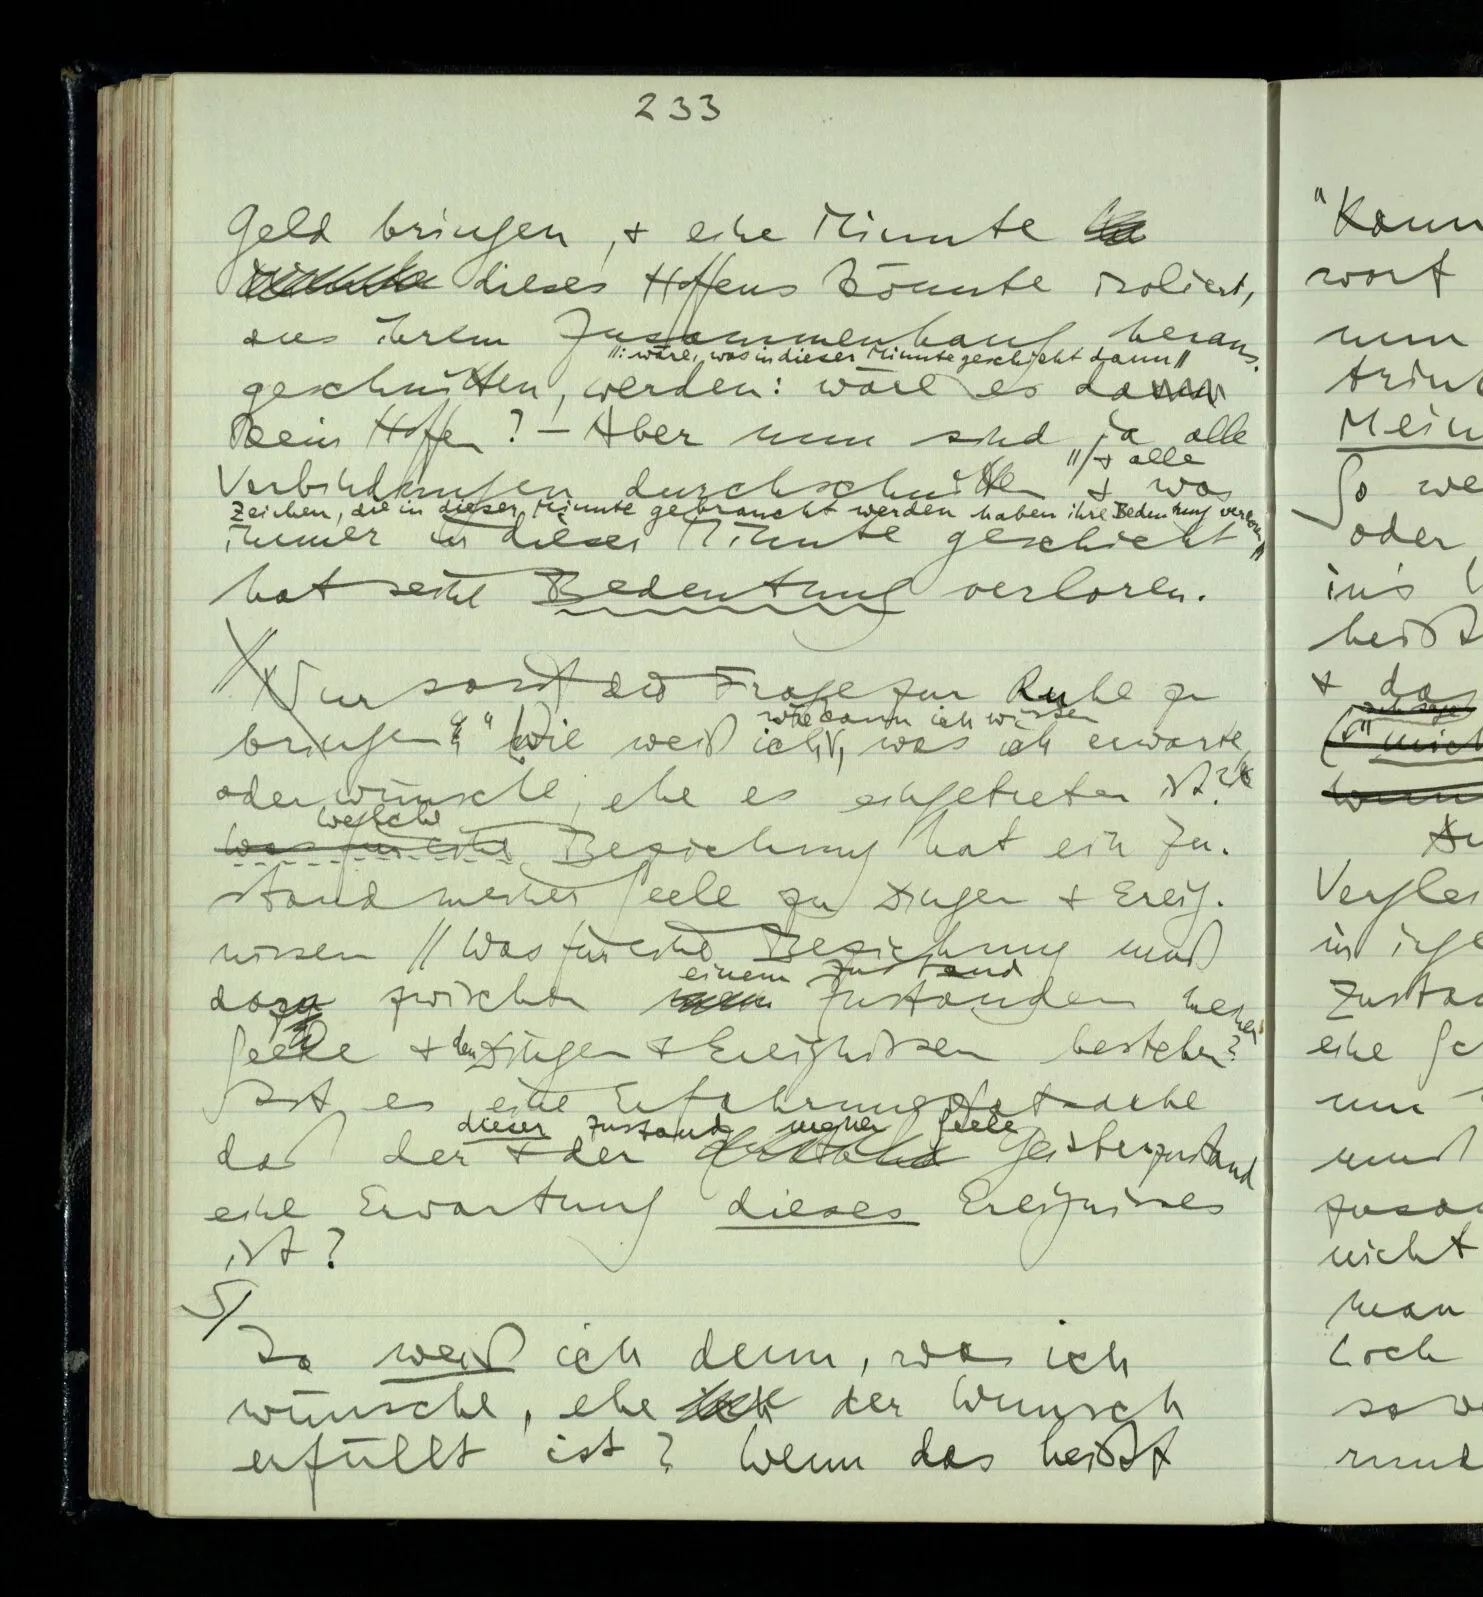 233
Geld bringen, & eine Minute
dieses Hoffens könnte isoliert,
aus ihrem Zusammenhang heraus-
//: wäre, was in dieser Minute geschieht dann//
geschnitten, werden: wäre es dann
kein Hoffen? – Aber nun sind ja alle
// & alle
Verbindungen durchschnitten & was
Zeichen, die in dieser Minute gebraucht werden haben ihre Bedeutung verloren//
immer in dieser Minute geschieht
hat seine Bedeutung verloren.
// Nur sonst die Frage zur Ruhe zu
wie kann ich wissen
bringen: "Wie weiß ich, was ich erwarte,
oder wünsche, ehe es eingetreten ist?"
welche
was für eine Beziehung hat ein Zu-
stand meiner Seele zu Dingen & Ereig-
nissen // Was für eine Beziehung muß
einem Zustand
dazu zwischen Zuständen meiner
Seele & den Dingen & Ereignissen bestehen?
Ist es eine Erfahrungstatsache
dieser Zustand meiner Seele
daß der & der Geisteszustand
eine Erwartung dieses Ereignisses
ist?
S/
Ja weiß ich denn, was ich
wünsche, ehe der Wunsch
erfüllt ist? Wenn das heißt
"Kann
wort
nun
trink
Mein
So we
oder
in's
heißt
& das
Verglei
in irge
Zustan
eine Ge
um
muß
zusam
nicht
man
Loch
sowe
rund